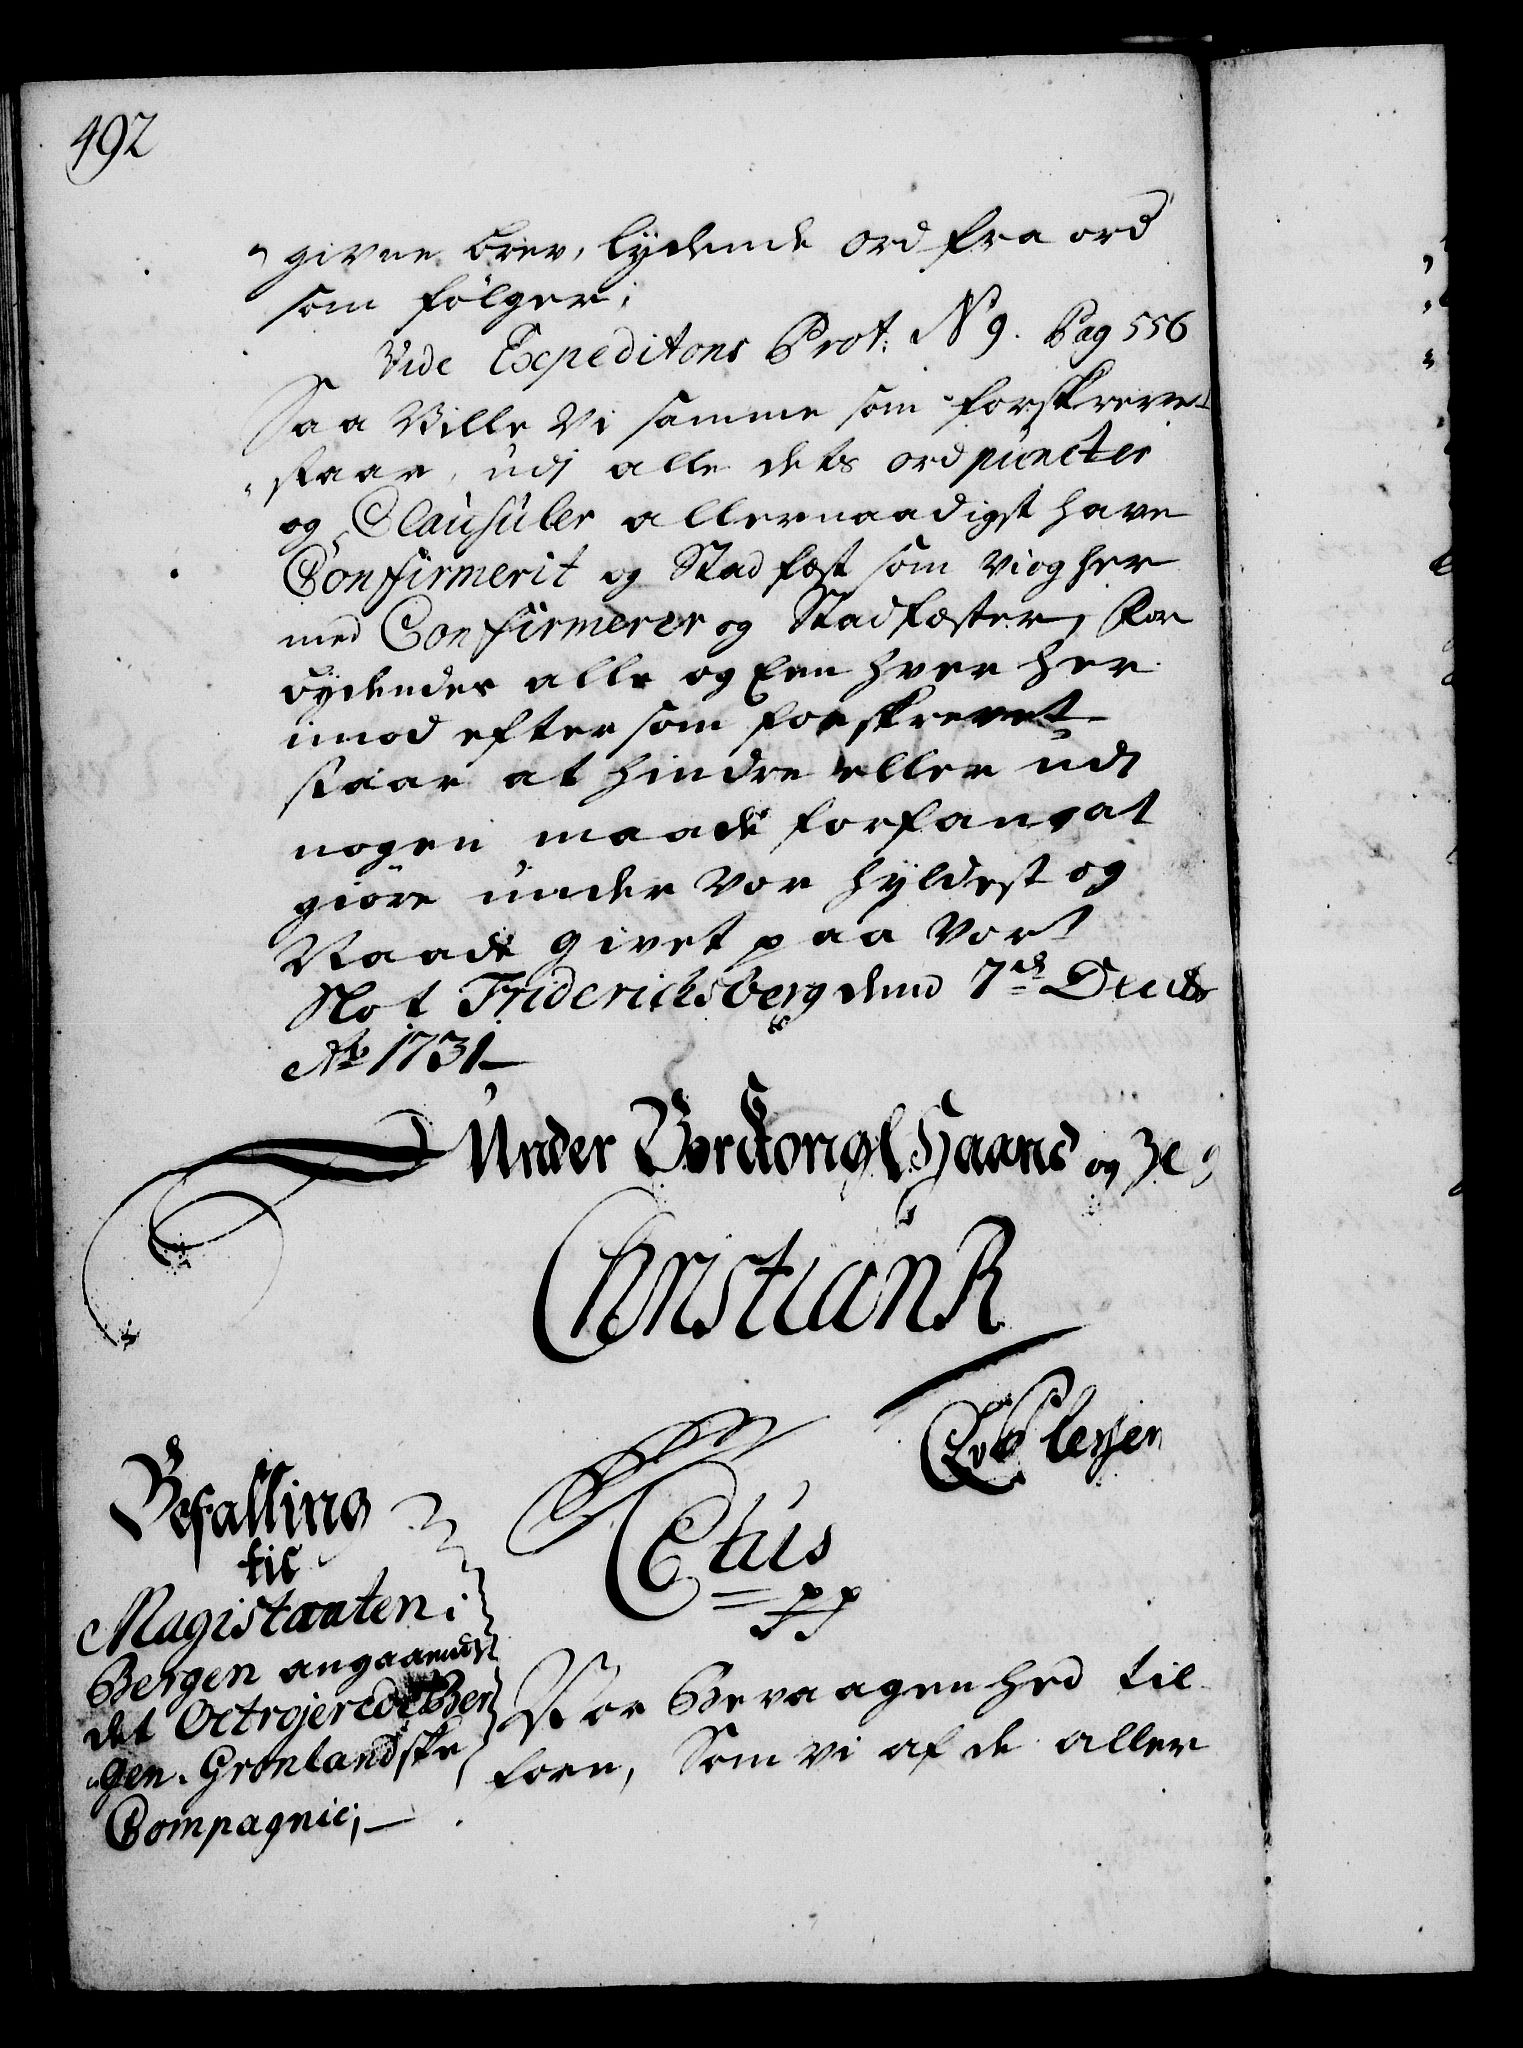 492
givne brev, lydende ord fra ord
som følger;
Vide Expeditons Prot: No 9. Pag 556
Saa Ville Vi samme som forskrevet
staar, udi alle dets ord puncter
og Clausuler allernaadigst have
Confirmerit og Stadfæst som vi og her
med Confirmerer og Stadfæster, For
bydendes alle og Een hver her
imod efter som forskrevet
staar at hindre eller udi
nogen maade forfang at
giöre under Vor Hyldest og
Naade givet paa Vort
Slot Fridericksberg dend 7de Decbr
Ao 1731
Under Vor Kongl Haand og Ze
Christian R
CvPlessen
Befalling
til
Magistraten i
Bergen angaaende
det Octrojerede Ber
gen Grønlandske
Compagnie;
C6tus
pp
Vor Bevaagenhed til
forn, Som vi af de aller